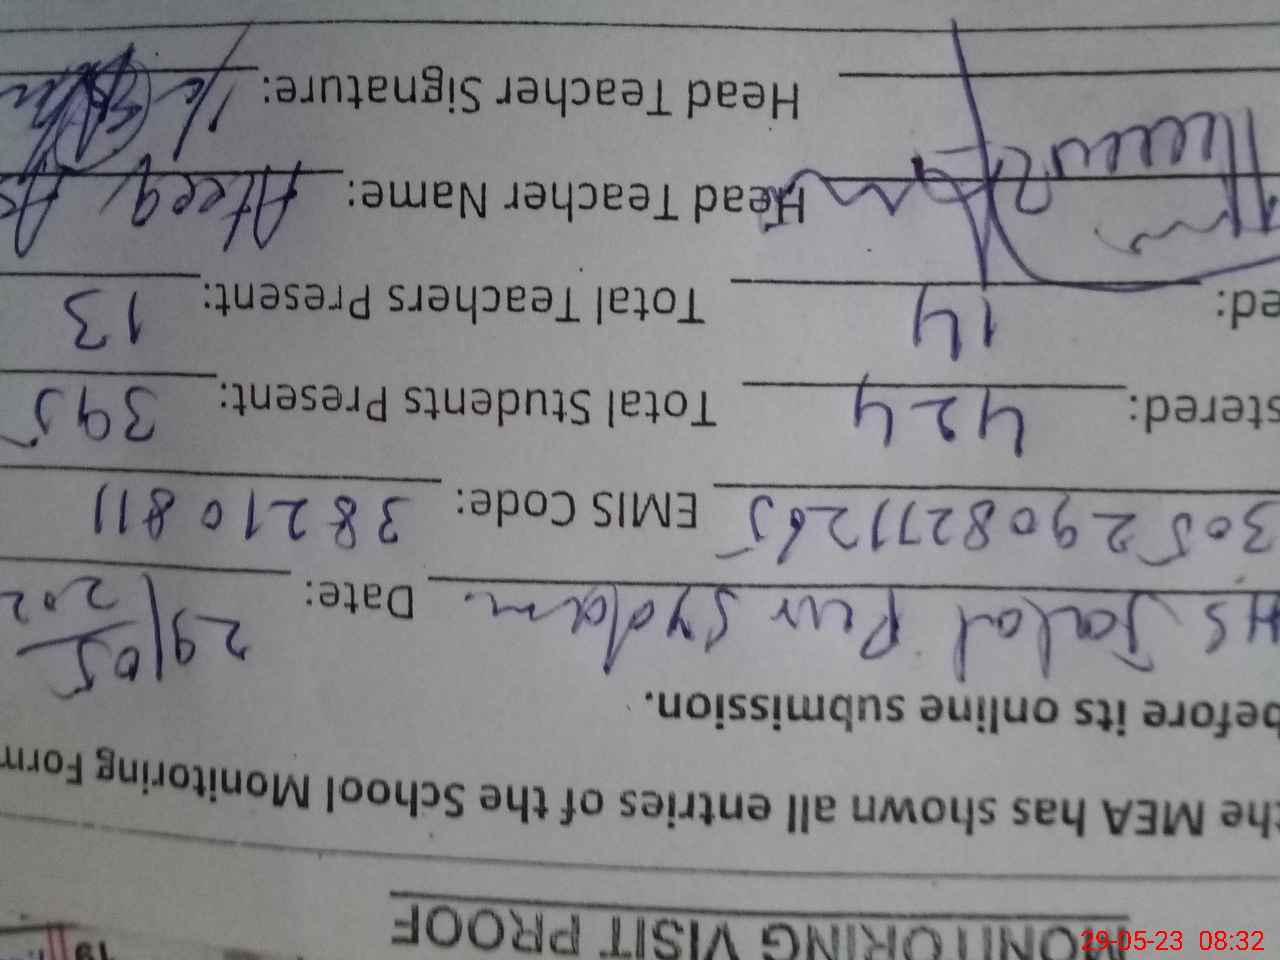 MONITORING VISIT PROOF
the MEA has shown all entries of the School Monitoring Form
before its online submission.
HS Jalal Pur Sydan. Date: 29/05/202
30529082771265 EMIS Code: 38210811
stered: 424 Total Students Present: 395
ed: 14 Total Teachers Present: 13
Head Teacher Name: Ateeq As
Head Teacher Signature:
29-05-23 08:32